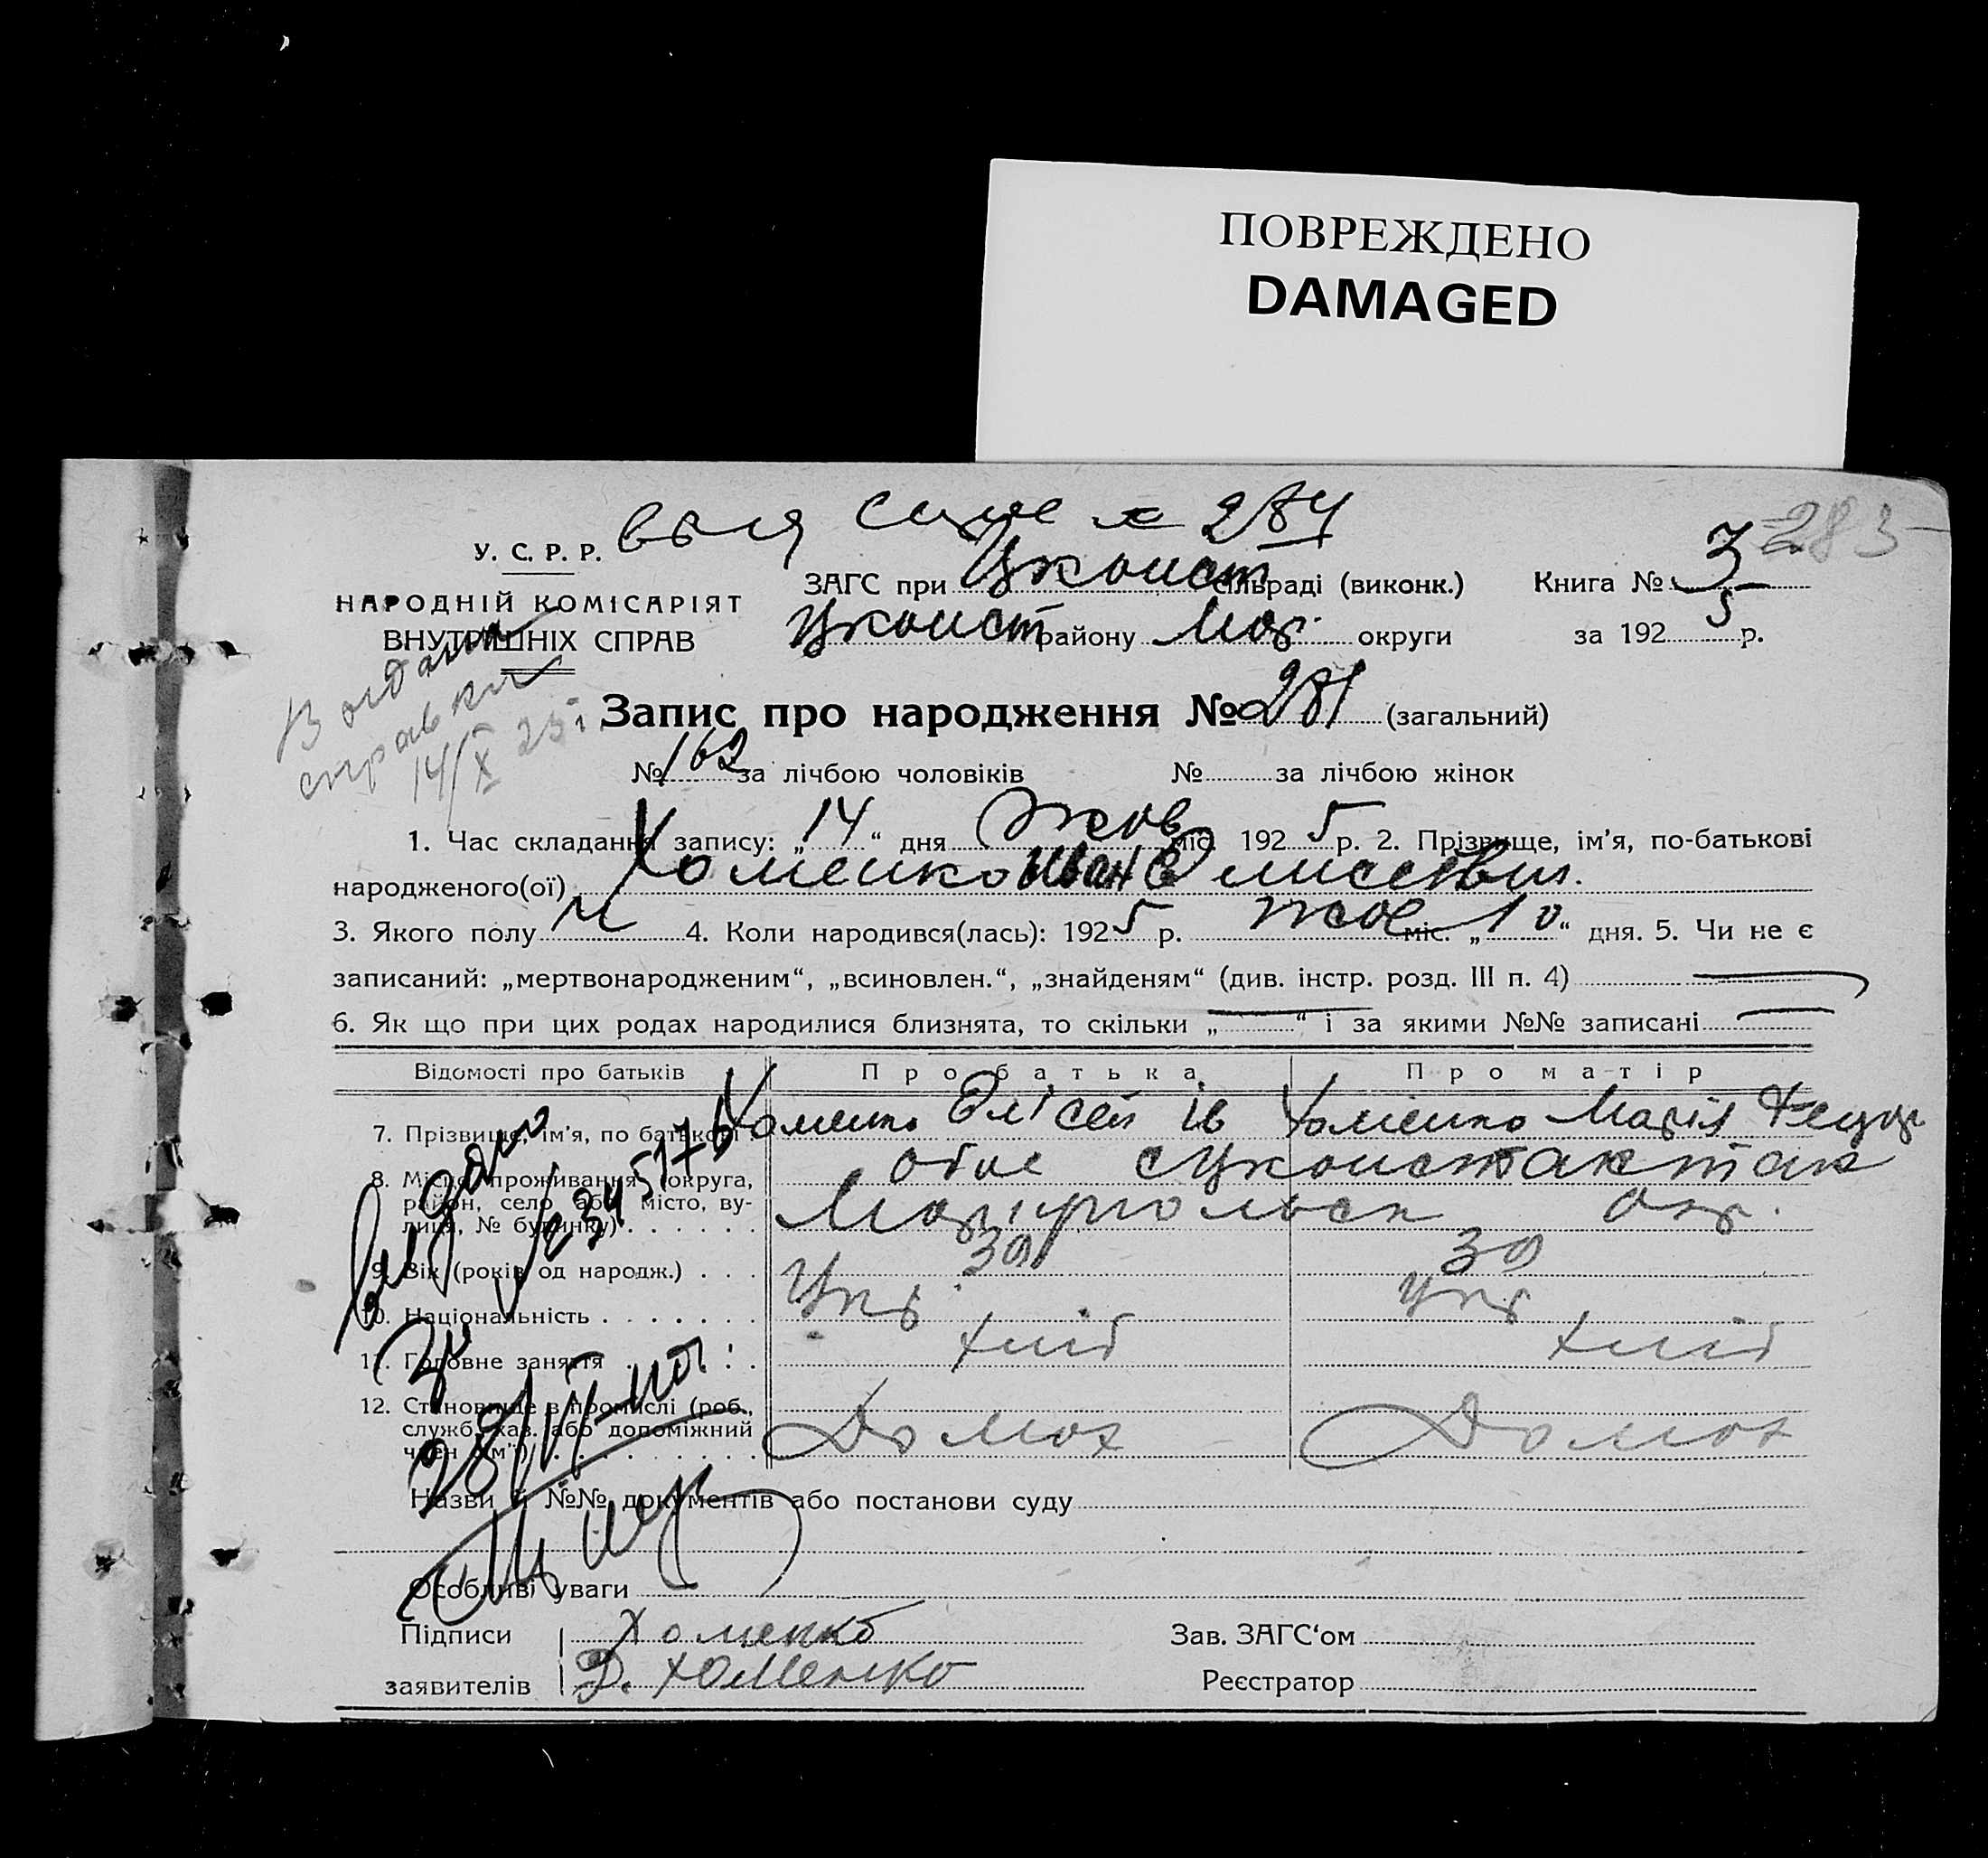 ПОВРЕЖДЕНО
DAMAGED
284
283
У. С. Р. Р.
НАРОДНІЙ КОМІСАРІЯТ
ВНУТРІШНІХ СПРАВ
ЗАГС при Цконст сільраді (виконк.) Книга № 3
Цконст району Мар. округи за 192 5 р.
справки
14/X 25
Запис про народження № 281 (загальний)
№ 162 за лічбою чоловіків № за лічбою жінок
1. Час складання запису: „ 14 “ дня Жов міс. 192 5 р. 2. Прізвище, ім’я, по-батькові
народженого(ої) Хоменко Иван
3. Якого полу м 4. Коли народився(лась): 192 5 р. жов міс. „ 10 “ дня. 5. Чи не є
записаний: „мертвонародженим“, „всиновлен.“, „знайденям“ (див. інстр. розд. III п. 4)
6. Як що при цих родах народилися близнята, то скільки „ “ і за якими №№ записані
Відомості про батьків Про батька Про матір
7. Прізвище, ім’я, по батькові Хоменко Элісей Ів Хоменко Марія
8. Місце проживання (округа, район, село або місто, вулиця, № будинку) обое
Маріупольск окр.
9. Вік (років од народж.) 30 30
10. Національність Укр. Укр
11. Головне заняття хліб хліб
12. Становище в промислі (роб., служб., хаз. або допоміжний член сім’ї) Домох Домох
видано
Назви й №№ документів або постанови суду
Особливі уваги
Підписи Хоменко Зав. ЗАГС‘ом
заявителів Хоменко Реєстратор